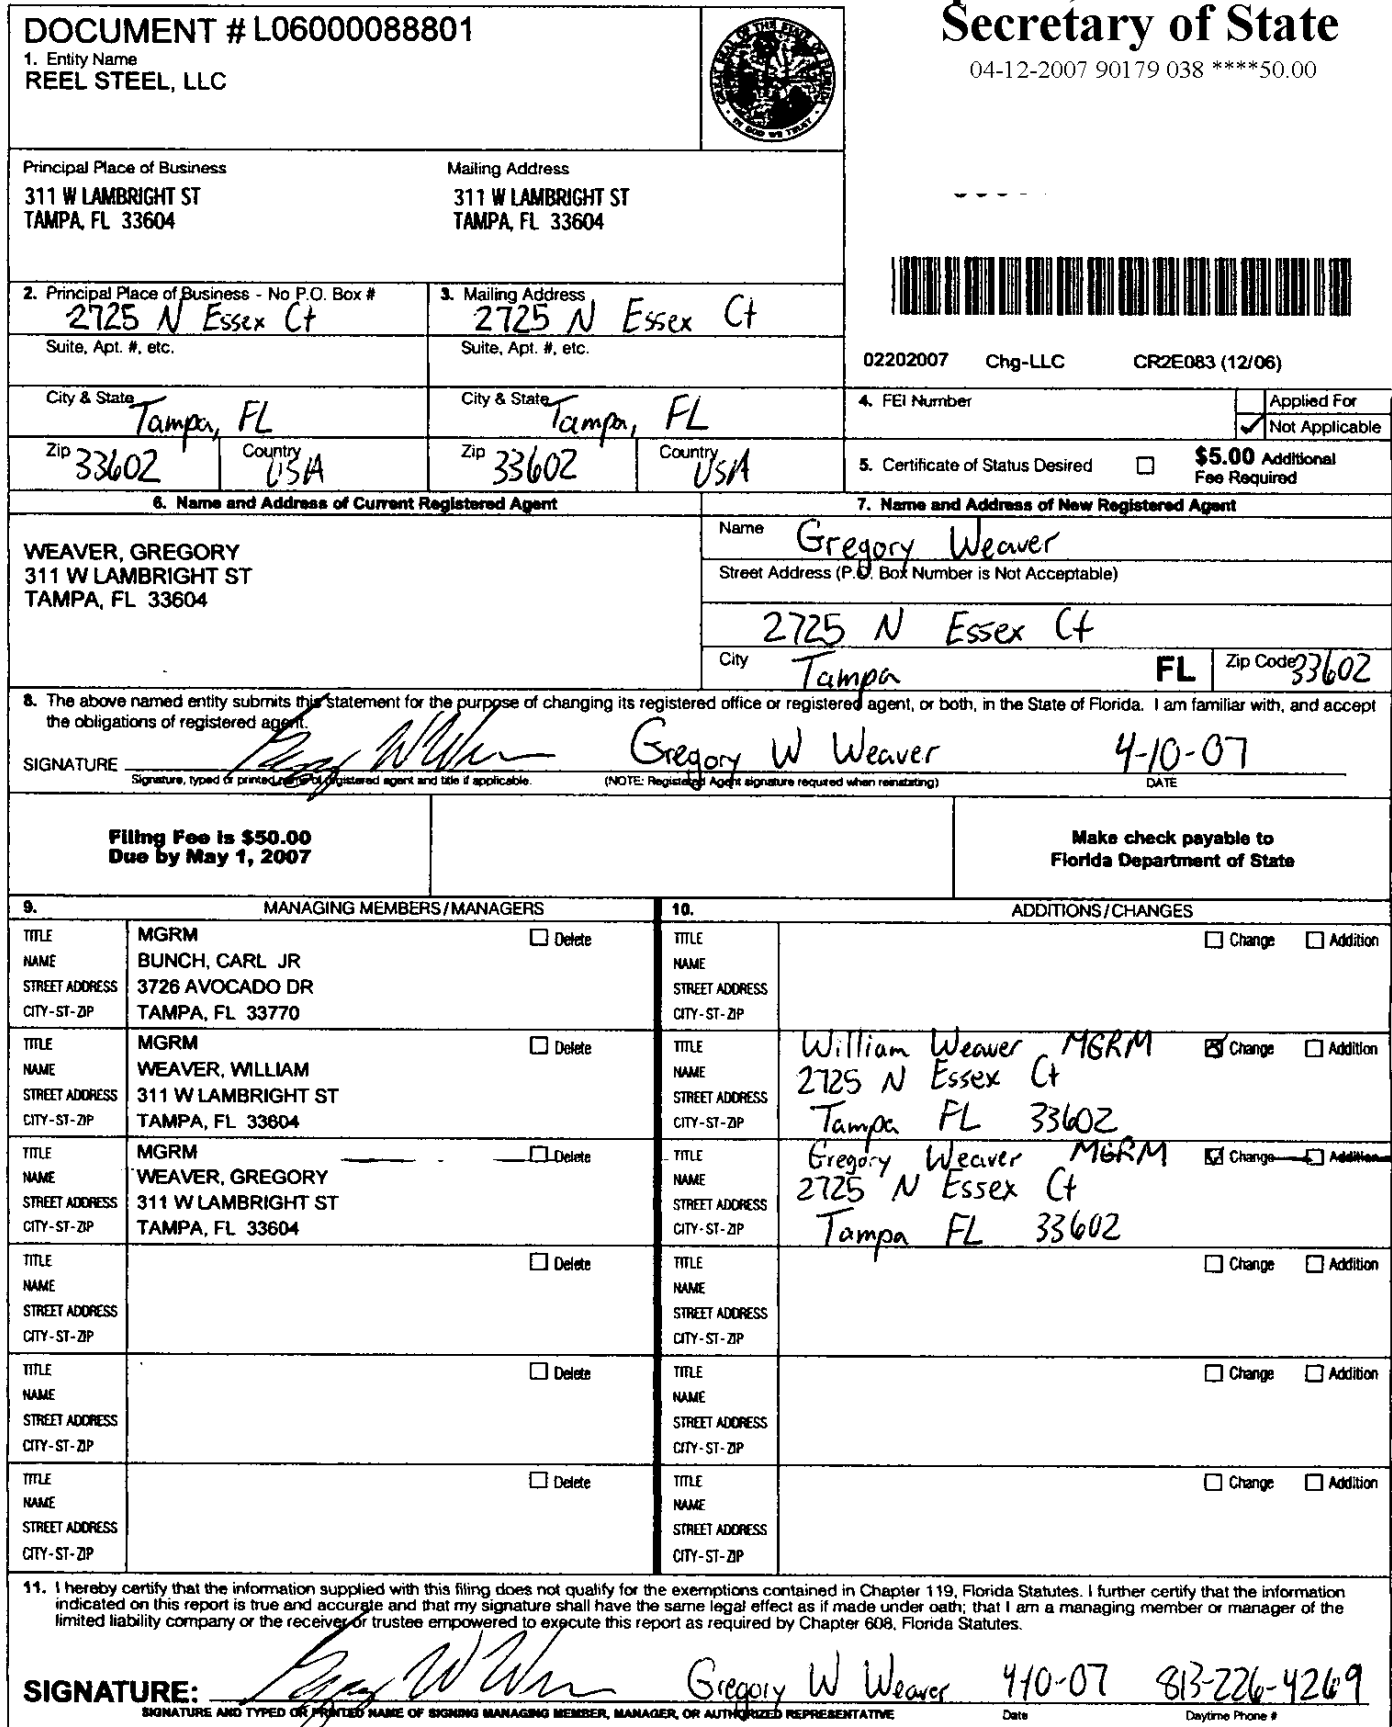 DOCUMENT # L06000088801
1. Entity Name
REEL STEEL, LLC
Secretary of State
04-12-2007 90179 038 ****50.00
Principal Place of Business
311 W LAMBRIGHT ST
TAMPA, FL 33604
Mailing Address
311 W LAMBRIGHT ST
TAMPA, FL 33604
2. Principal Place of Business - No P.O. Box #
2725 N Essex Ct
3. Mailing Address
2725 N Essex Ct
Suite, Apt. #, etc.
Suite, Apt. #, etc.
02202007 Chg-LLC CR2E083 (12/06)
City & State
Tampa, FL
City & State
Tampa, FL
4. FEI Number
Applied For
✓ Not Applicable
Zip 33602
Country USA
Zip 33602
Country USA
5. Certificate of Status Desired ☐
$5.00 Additional
Fee Required
6. Name and Address of Current Registered Agent
WEAVER, GREGORY
311 W LAMBRIGHT ST
TAMPA, FL 33604
7. Name and Address of New Registered Agent
Name Gregory Weaver
Street Address (P.O. Box Number is Not Acceptable)
2725 N Essex Ct
City Tampa FL Zip Code 33602
8. The above named entity submits this statement for the purpose of changing its registered office or registered agent, or both, in the State of Florida. I am familiar with, and accept
the obligations of registered agent.
SIGNATURE Gregory W Weaver 4-10-07
Signature, typed or printed name of registered agent and title if applicable. (NOTE: Registered Agent signature required when reinstating) DATE
Filing Fee is $50.00
Due by May 1, 2007
Make check payable to
Florida Department of State
9. MANAGING MEMBERS/MANAGERS
10. ADDITIONS/CHANGES
TITLE MGRM ☐ Delete
NAME BUNCH, CARL JR
STREET ADDRESS 3726 AVOCADO DR
CITY-ST-ZIP TAMPA, FL 33770
TITLE ☐ Change ☐ Addition
NAME
STREET ADDRESS
CITY-ST-ZIP
TITLE MGRM ☐ Delete
NAME WEAVER, WILLIAM
STREET ADDRESS 311 W LAMBRIGHT ST
CITY-ST-ZIP TAMPA, FL 33604
TITLE William Weaver MGRM ☒ Change ☐ Addition
NAME 2725 N Essex Ct
STREET ADDRESS
CITY-ST-ZIP Tampa FL 33602
TITLE MGRM ☐ Delete
NAME WEAVER, GREGORY
STREET ADDRESS 311 W LAMBRIGHT ST
CITY-ST-ZIP TAMPA, FL 33604
TITLE Gregory Weaver MGRM ☑ Change ☐ Addition
NAME 2725 N Essex Ct
STREET ADDRESS
CITY-ST-ZIP Tampa FL 33602
TITLE ☐ Delete
NAME
STREET ADDRESS
CITY-ST-ZIP
TITLE ☐ Change ☐ Addition
NAME
STREET ADDRESS
CITY-ST-ZIP
TITLE ☐ Delete
NAME
STREET ADDRESS
CITY-ST-ZIP
TITLE ☐ Change ☐ Addition
NAME
STREET ADDRESS
CITY-ST-ZIP
TITLE ☐ Delete
NAME
STREET ADDRESS
CITY-ST-ZIP
TITLE ☐ Change ☐ Addition
NAME
STREET ADDRESS
CITY-ST-ZIP
11. I hereby certify that the information supplied with this filing does not qualify for the exemptions contained in Chapter 119, Florida Statutes. I further certify that the information
indicated on this report is true and accurate and that my signature shall have the same legal effect as if made under oath; that I am a managing member or manager of the
limited liability company or the receiver or trustee empowered to execute this report as required by Chapter 608, Florida Statutes.
SIGNATURE: Gregory W Weaver 4-10-07 813-226-4269
SIGNATURE AND TYPED OR PRINTED NAME OF SIGNING MANAGING MEMBER, MANAGER, OR AUTHORIZED REPRESENTATIVE Date Daytime Phone #